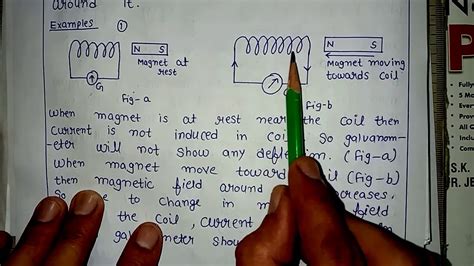 around it.
Examples ①
N S
Magnet at
rest
G
Fig-a
N S
Magnet moving
towards coil
Fig-b
When magnet is at rest near the coil then
Current is not induced in coi So galvanom-
eter will not show any deflection. (Fig-a)
When magnet move toward il (Fig-b)
then magnetic field around reases.
So e to change in m field
the coil, current
gal meter show
Fully
5 M
Ever
Prev
All C
Inclu
Com
S.K.
R. JE